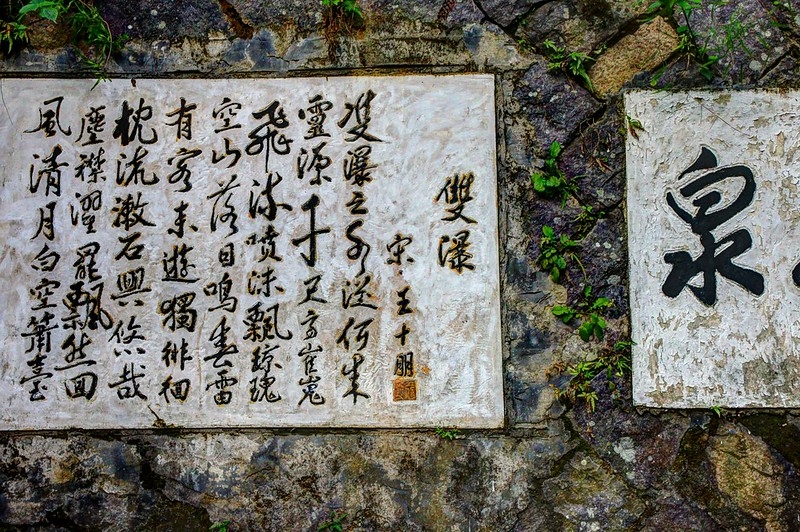 泉
雙瀑
宋·王十朋
雙瀑之水從何來
靈源千尺高崔嵬
飛流噴沫飄瓊瑰
空山落日鳴春雷
有客來遊獨徘徊
枕流漱石興悠哉
塵襟濯罷飄然回
風清月白空簫臺